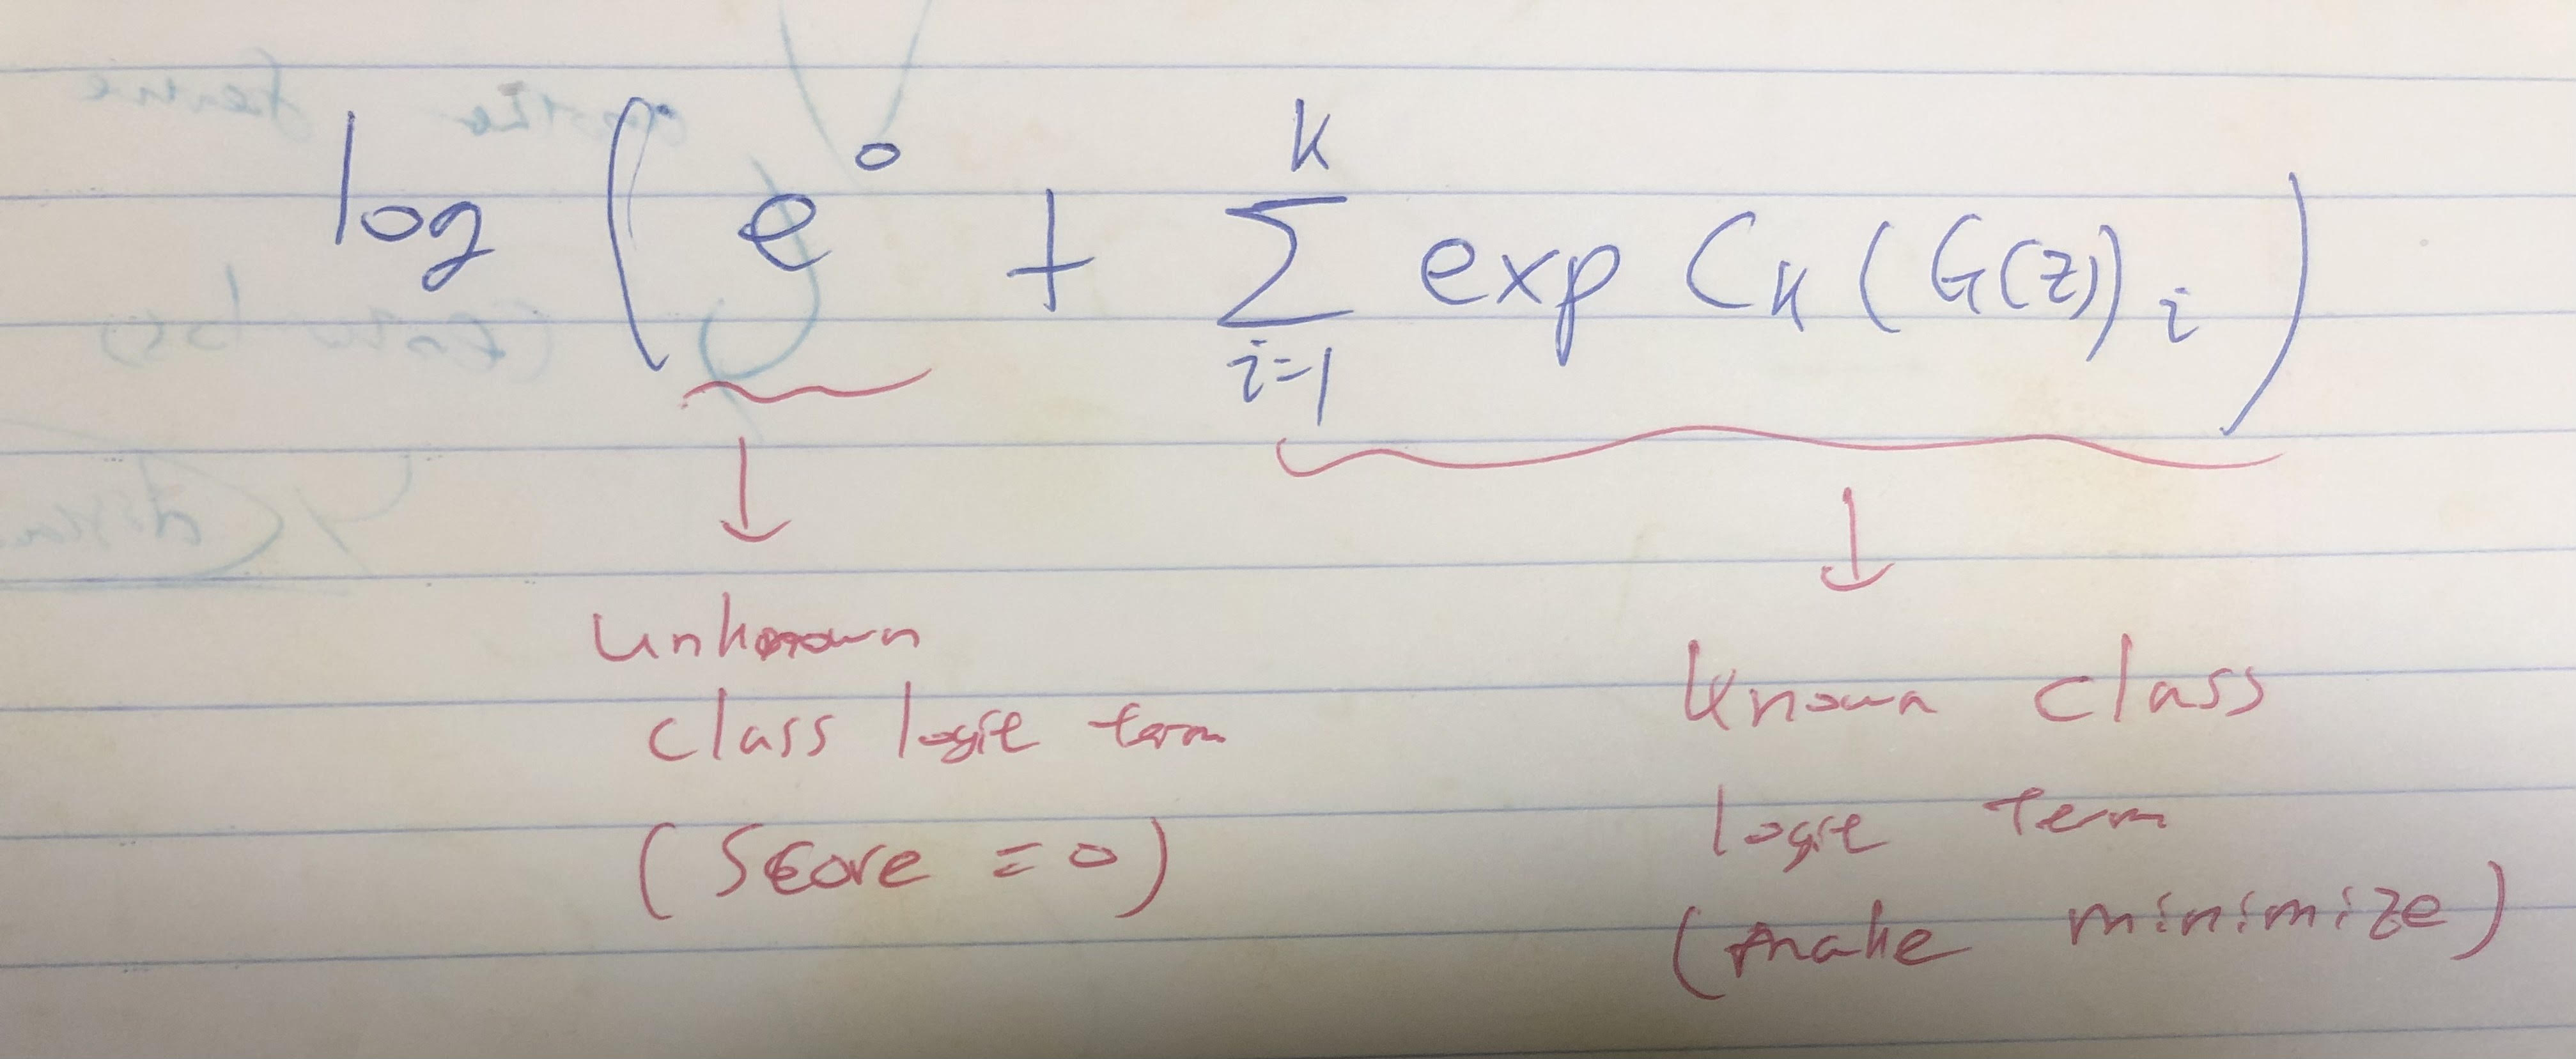 log ( e^0 + \sum_{i=1}^{K} exp C_K (G(z))_i )
unknown
class logit term
(Score = 0)
known class
logit term
(make minimize)